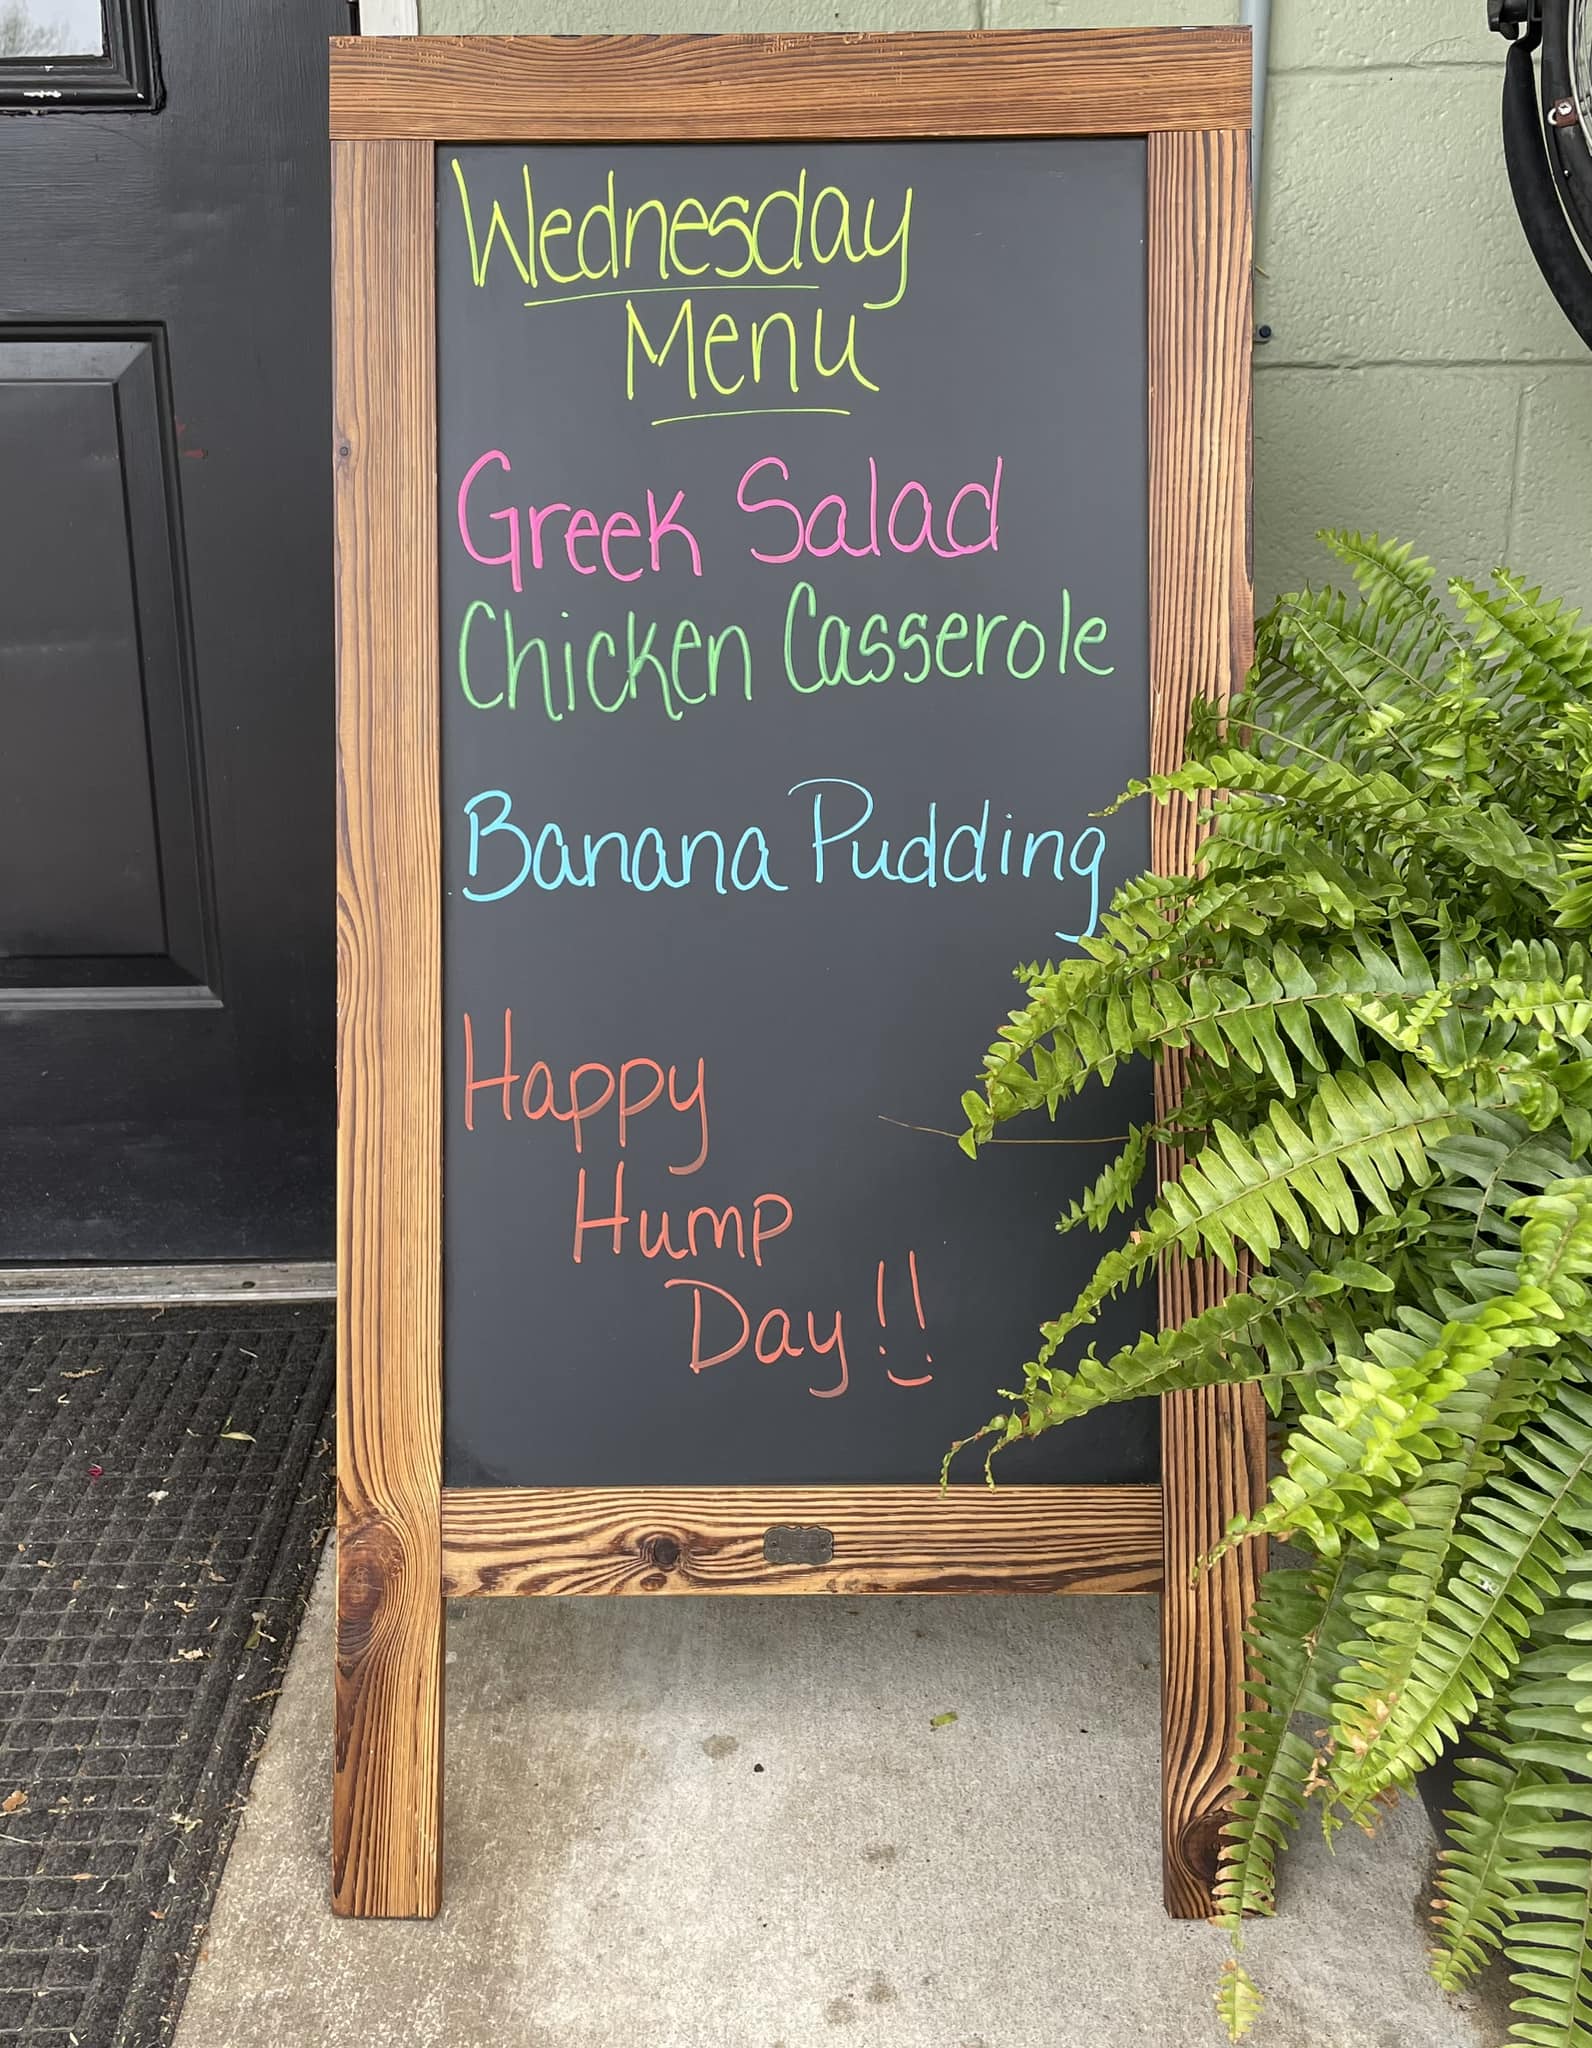 Wednesday
Menu
Greek Salad
Chicken Casserole
Banana Pudding
Happy
Hump
Day!!